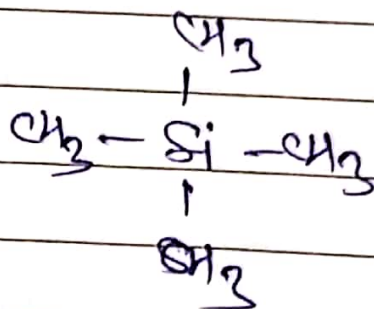 CH3
|
CH3 - Si - CH3
|
CH3